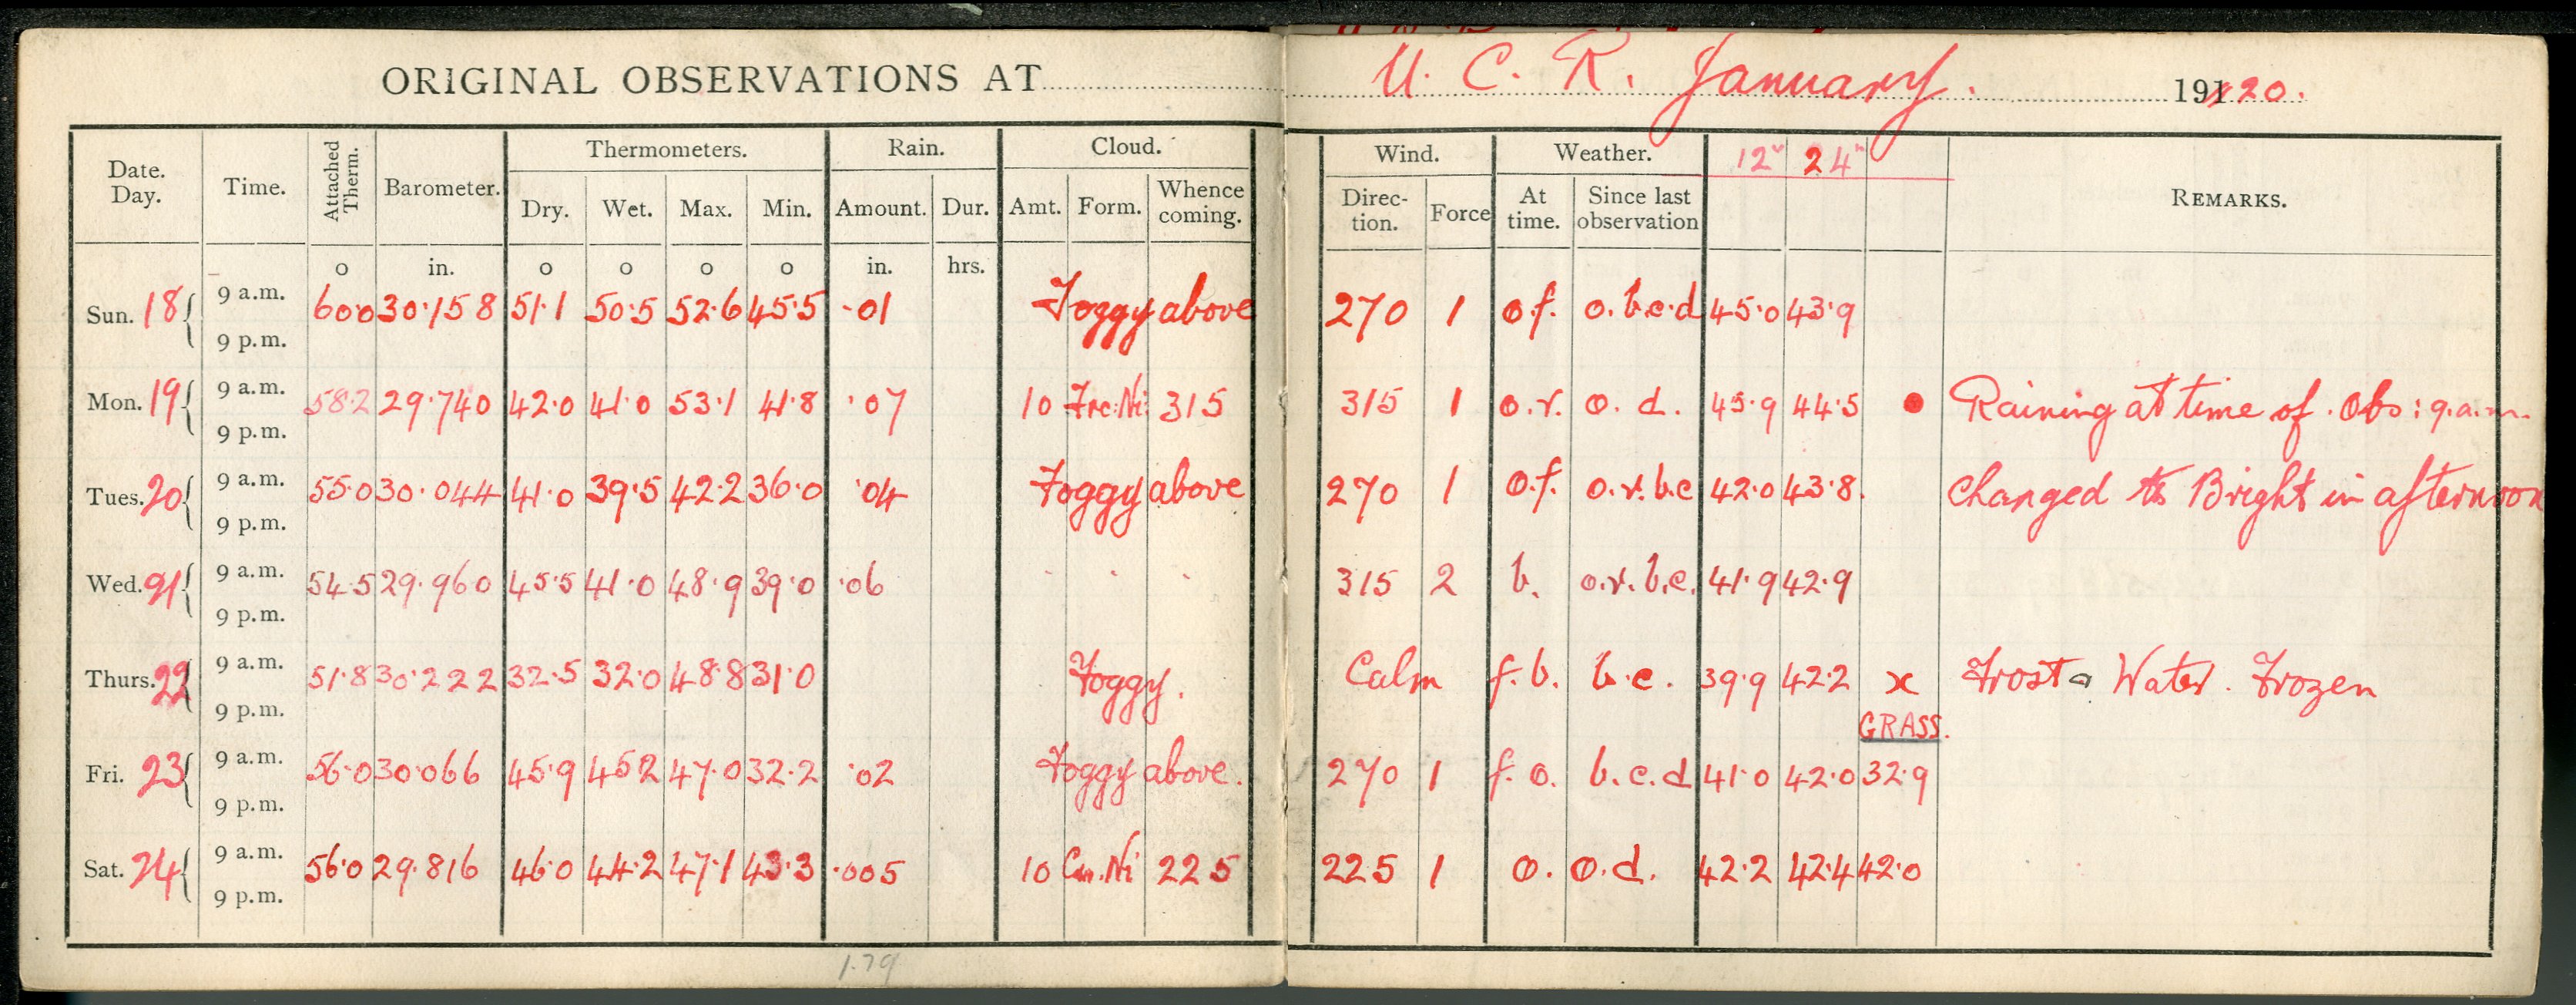 ORIGINAL OBSERVATIONS AT U. C. R. January. 19120.
Date. Day. Time. Attached Therm. Barometer. Thermometers. Rain. Cloud. Wind. Weather. 12" 24" REMARKS.
Dry. Wet. Max. Min. Amount. Dur. Amt. Form. Whence coming. Direc-tion. Force At time. Since last observation
o in. o o o o in. hrs.
Sun. 18 9 a.m. 60.0 30.158 51.1 50.5 52.6 45.5 .01 Foggy above 270 1 o.f. o.b.c.d 45.0 43.9
9 p.m.
Mon. 19 9 a.m. 58.2 29.740 42.0 41.0 53.1 41.8 .07 10 Frc:Ni: 315 315 1 o.r. o. d. 45.9 44.5 ● Raining at time of Obs: 9.a.m.
9 p.m.
Tues. 20 9 a.m. 55.0 30.044 41.0 39.5 42.2 36.0 .04 Foggy above 270 1 o.f. o.r.b.c 42.0 43.8. Changed to Bright in afternoon
9 p.m.
Wed. 21 9 a.m. 54.5 29.960 45.5 41.0 48.9 39.0 .06 315 2 b. o.r.b.c. 41.9 42.9
9 p.m.
Thurs. 22 9 a.m. 51.8 30.222 32.5 32.0 48.8 31.0 Foggy. Calm f.b. b.c. 39.9 42.2 x Frost Water. Frozen
9 p.m. GRASS.
Fri. 23 9 a.m. 56.0 30.066 45.9 45.2 47.0 32.2 .02 Foggy above. 270 1 f. o. b.c.d 41.0 42.0 32.9
9 p.m.
Sat. 24 9 a.m. 56.0 29.816 46.0 44.2 47.1 43.3 .005 10 Cu.Ni 225 225 1 o. o.d. 42.2 42.4 42.0
9 p.m.
1.79